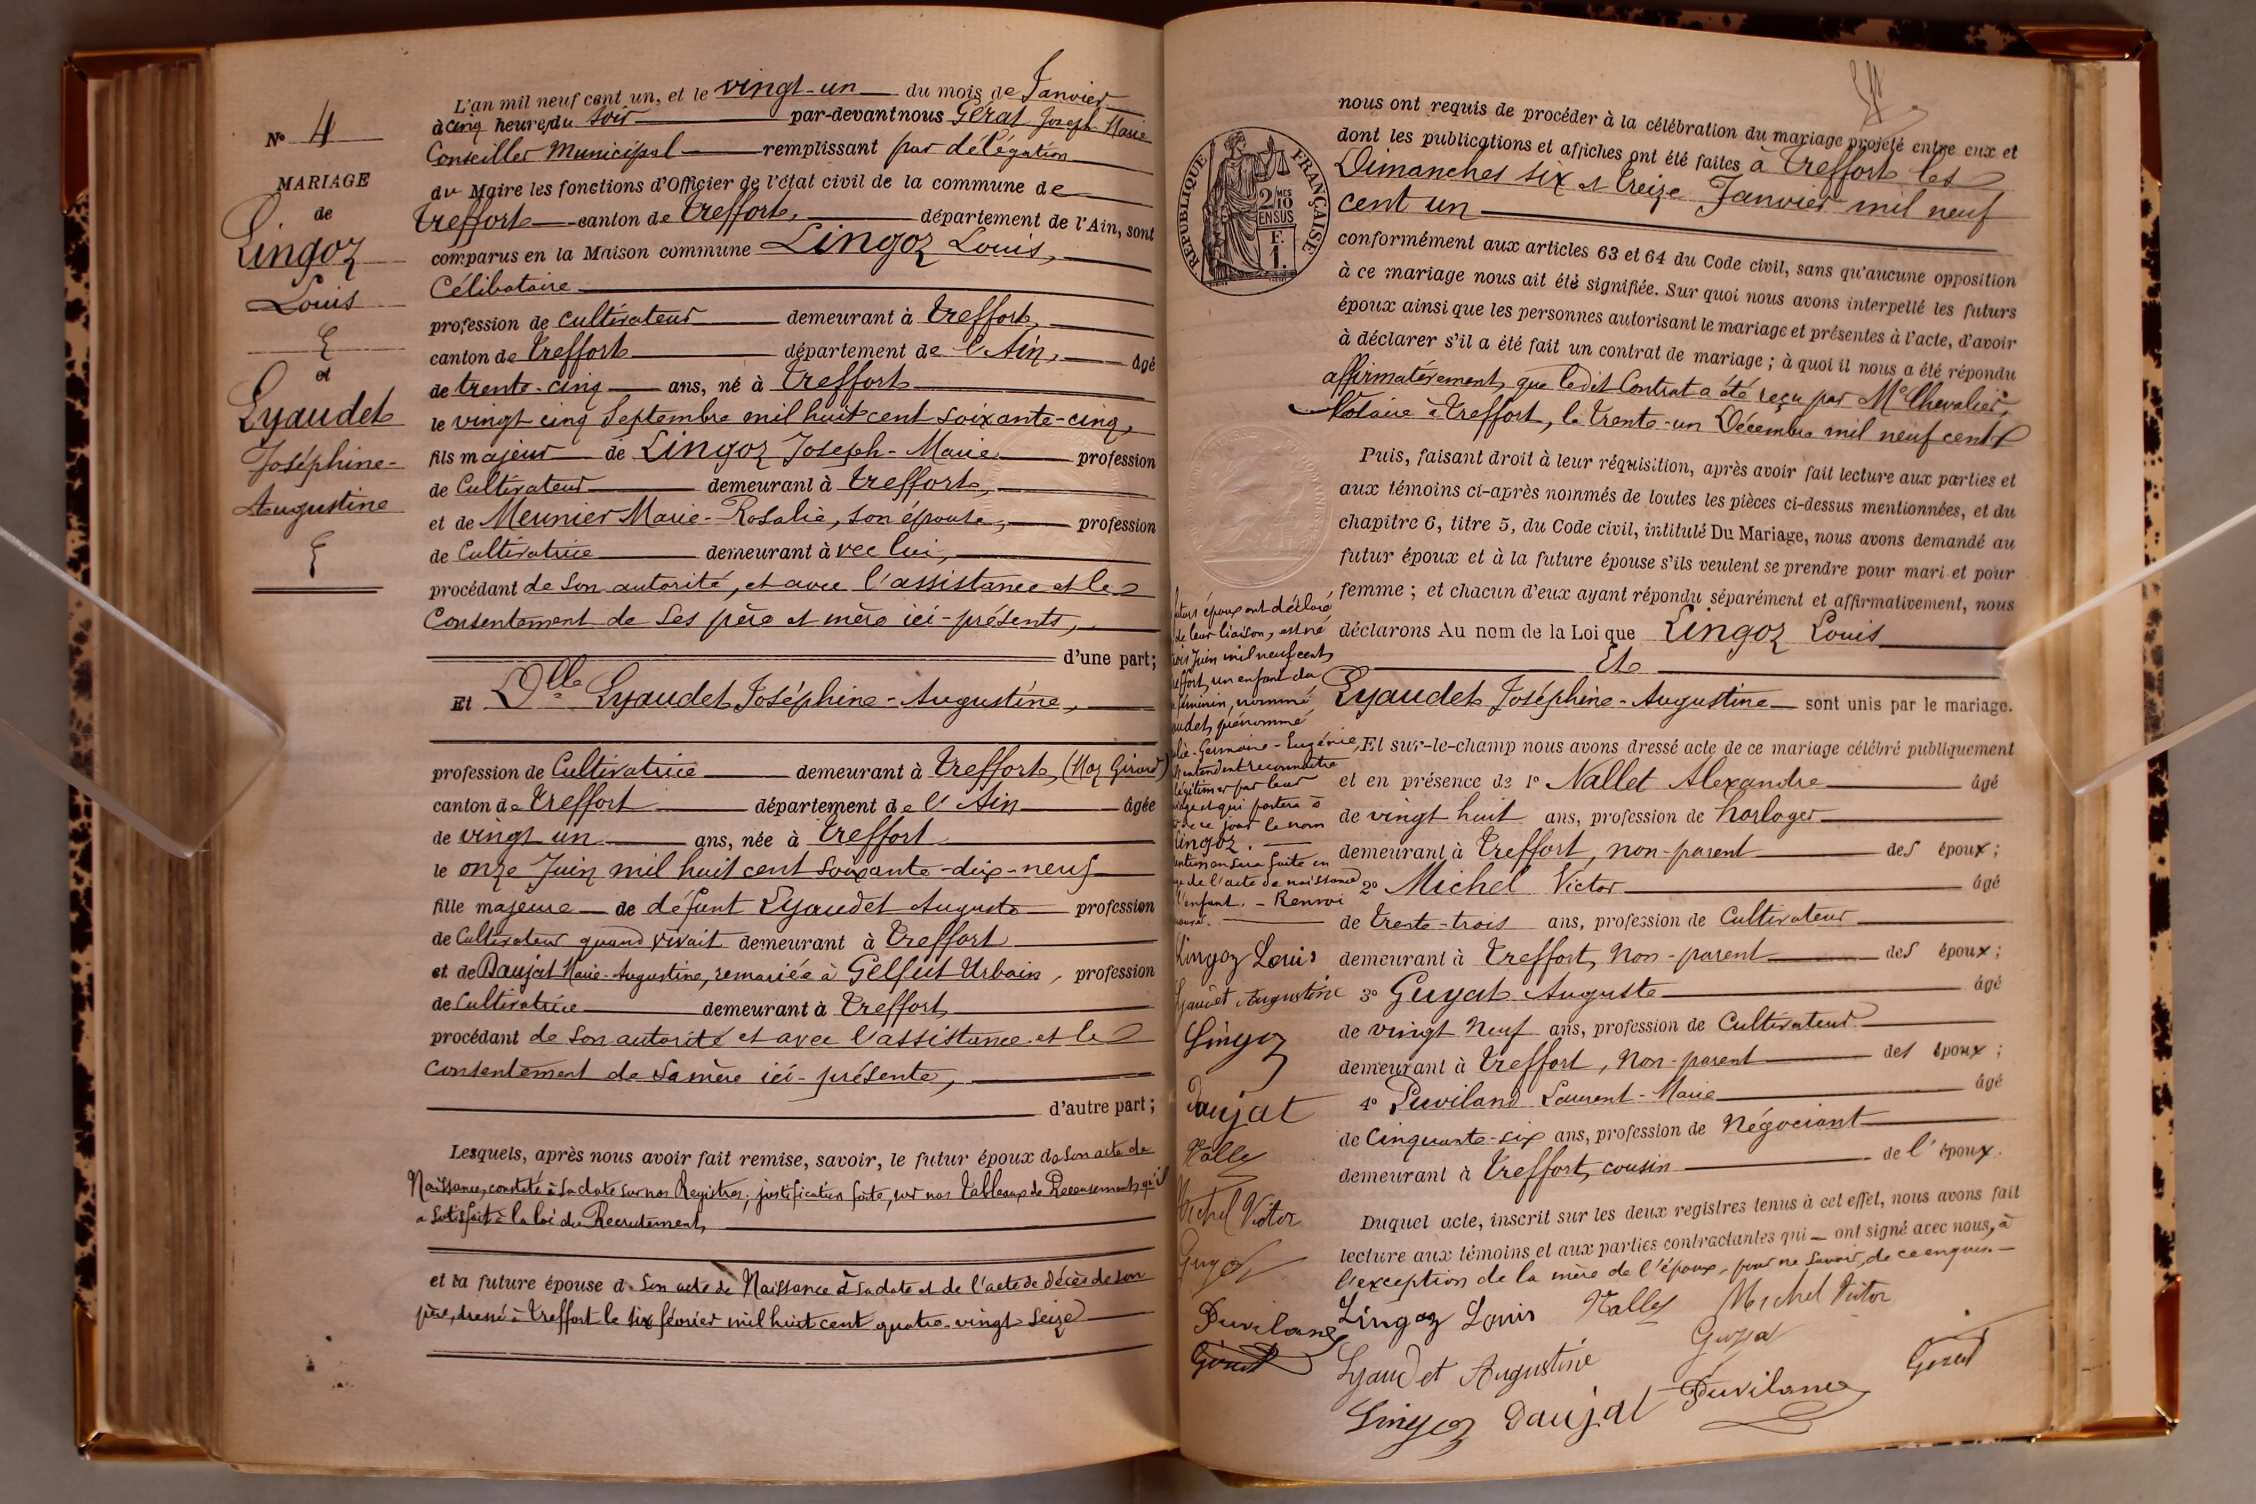 N° 4
MARIAGE
de
Lingoz
Louis
et
Lyaudet
Joséphine-
Augustine
L'an mil neuf cent un, et le vingt-un du mois de Janvier
à cinq heures du soir par-devant nous Gérat Joseph-Marie
Conseiller Municipal remplissant par délégation
du Maire les fonctions d'Officier de l'état civil de la commune de
Treffort canton de Treffort, département de l'Ain, sont
comparus en la Maison commune Lingoz Louis,
Célibataire
profession de cultivateur demeurant à Treffort,
canton de Treffort département de l'Ain, âgé
de trente-cinq ans, né à Treffort
le vingt cinq Septembre mil huit cent soixante-cinq,
fils majeur de Lingoz Joseph-Marie profession
de Cultivateur demeurant à Treffort,
et de Meunier Marie-Rosalie, son épouse, profession
de Cultivatrice demeurant à vec lui,
procédant de son autorité, et avec l'assistance et le
Consentement de ses père et mère ici-présents,
d'une part;
Et Dlle Lyaudet Joséphine-Augustine,
profession de Cultivatrice demeurant à Treffort, (Moz Girard)
canton de Treffort département de l'Ain âgée
de vingt un ans, née à Treffort
le onze Juin mil huit cent soixante-dix-neuf
fille majeure de défunt Lyaudet Auguste profession
de Cultivateur quand vivait demeurant à Treffort
et de Daujat Marie-Augustine, remariée à Gelfut Urbain, profession
de Cultivatrice demeurant à Treffort
procédant de son autorité et avec l'assistance et le
consentement de sa mère ici-présente,
d'autre part;
Lesquels, après nous avoir fait remise, savoir, le futur époux de son acte de
Naissance, constaté à sa date sur nos Registres; justification faite, sur nos Tableaux de Recensement, qu'il
a satisfait à la loi du Recrutement,
et la future épouse de son acte de Naissance à sa date et de l'acte de décès de son
père, dressé à Treffort le six février mil huit cent quatre-vingt-seize
nous ont requis de procéder à la célébration du mariage projeté entre eux et
dont les publications et affiches ont été faites à Treffort les
Dimanches six et treize Janvier mil neuf
cent un
RÉPUBLIQUE FRANÇAISE
2/10 MES
EN SUS
F.
1.
conformément aux articles 63 et 64 du Code civil, sans qu'aucune opposition
à ce mariage nous ait été signifiée. Sur quoi nous avons interpellé les futurs
époux ainsi que les personnes autorisant le mariage et présentes à l'acte, d'avoir
à déclarer s'il a été fait un contrat de mariage ; à quoi il nous a été répondu
affirmativement, que ledit Contrat a été reçu par Me Chevalier,
Notaire à Treffort, le trente-un Décembre mil neuf cent
Puis, faisant droit à leur réquisition, après avoir fait lecture aux parties et
aux témoins ci-après nommés de toutes les pièces ci-dessus mentionnées, et du
chapitre 6, titre 5, du Code civil, intitulé Du Mariage, nous avons demandé au
futur époux et à la future épouse s'ils veulent se prendre pour mari et pour
femme ; et chacun d'eux ayant répondu séparément et affirmativement, nous
déclarons Au nom de la Loi que Lingoz Louis
Et
Lyaudet Joséphine-Augustine sont unis par le mariage.
Et sur-le-champ nous avons dressé acte de ce mariage célébré publiquement
et en présence de 1° Nallet Alexandre âgé
de vingt huit ans, profession de horloger
demeurant à Treffort, non-parent des époux ;
2° Michel Victor âgé
de trente-trois ans, profession de Cultivateur
demeurant à Treffort, non-parent des époux ;
3° Guyat Auguste âgé
de vingt neuf ans, profession de Cultivateur
demeurant à Treffort, non-parent des époux ;
4° Puviland Laurent-Marie âgé
de Cinquante-six ans, profession de Négociant
demeurant à Treffort, cousin de l'époux.
Duquel acte, inscrit sur les deux registres tenus à cet effet, nous avons fait
lecture aux témoins et aux parties contractantes qui ont signé avec nous, à
l'exception de la mère de l'époux, pour ne savoir, de ce enquis.
Lingoz Louis Nallet Michel Victor
Lyaudet Augustine Guyat Gérat
Lingoz Daujat Puviland
futurs époux ont déclaré
de leur liaison, est né
trois Juin mil neuf cent,
Treffort, un enfant du
féminin, nommé
prénommé
Germaine-Eugénie,
entendent reconnaître
légitimer par leur
et qui portera à
de ce jour le nom
Lingoz.
mention sera faite en
de l'acte de naissance
l'enfant. - Renvoi
Lingoz Louis
Lyaudet Augustine
Lingoz
Daujat
Nallet
Michel Victor
Guyat
Puviland
Gérat